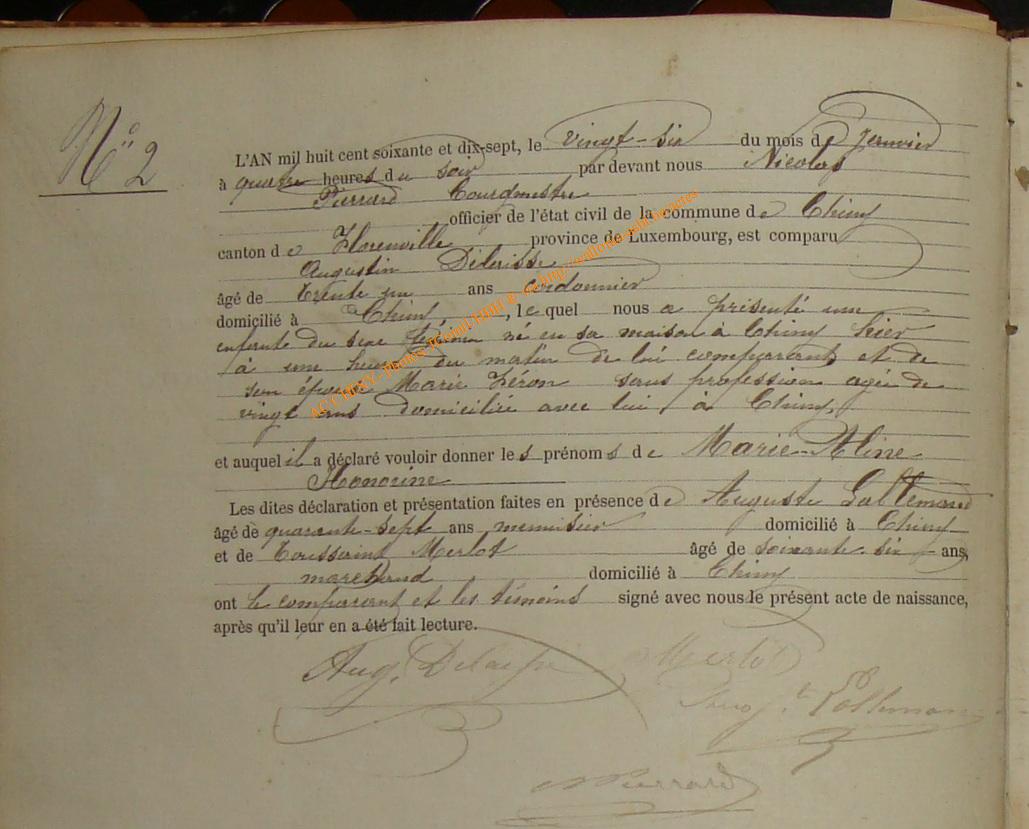 N° 2
L'AN mil huit cent soixante et dix-sept, le vingt-six du mois de Janvier
à quatre heures du soir par devant nous Nicolas
Pierrard Bourgmestre
officier de l'état civil de la commune de Chiny
canton de Florenville province de Luxembourg, est comparu
Augustin
âgé de trente un ans cordonnier
domicilié à Chiny, lequel nous a présenté une
enfante du sexe né en sa maison à Chiny hier
à une heure du matin de lui comparant et de
son épouse Marie Féron sans profession agée de
vingt ans domiciliée avec lui à Chiny,
et auquel il a déclaré vouloir donner les prénoms de Marie-Aline
Honorine
Les dites déclaration et présentation faites en présence de Auguste
âgé de quarante-sept ans menuisier domicilié à Chiny
et de Toussaint Merlot âgé de soixante-six ans,
marchand domicilié à Chiny
ont le comparant et les témoins signé avec nous le présent acte de naissance,
après qu'il leur en a été fait lecture.
Aug. Merlot
NPierrard